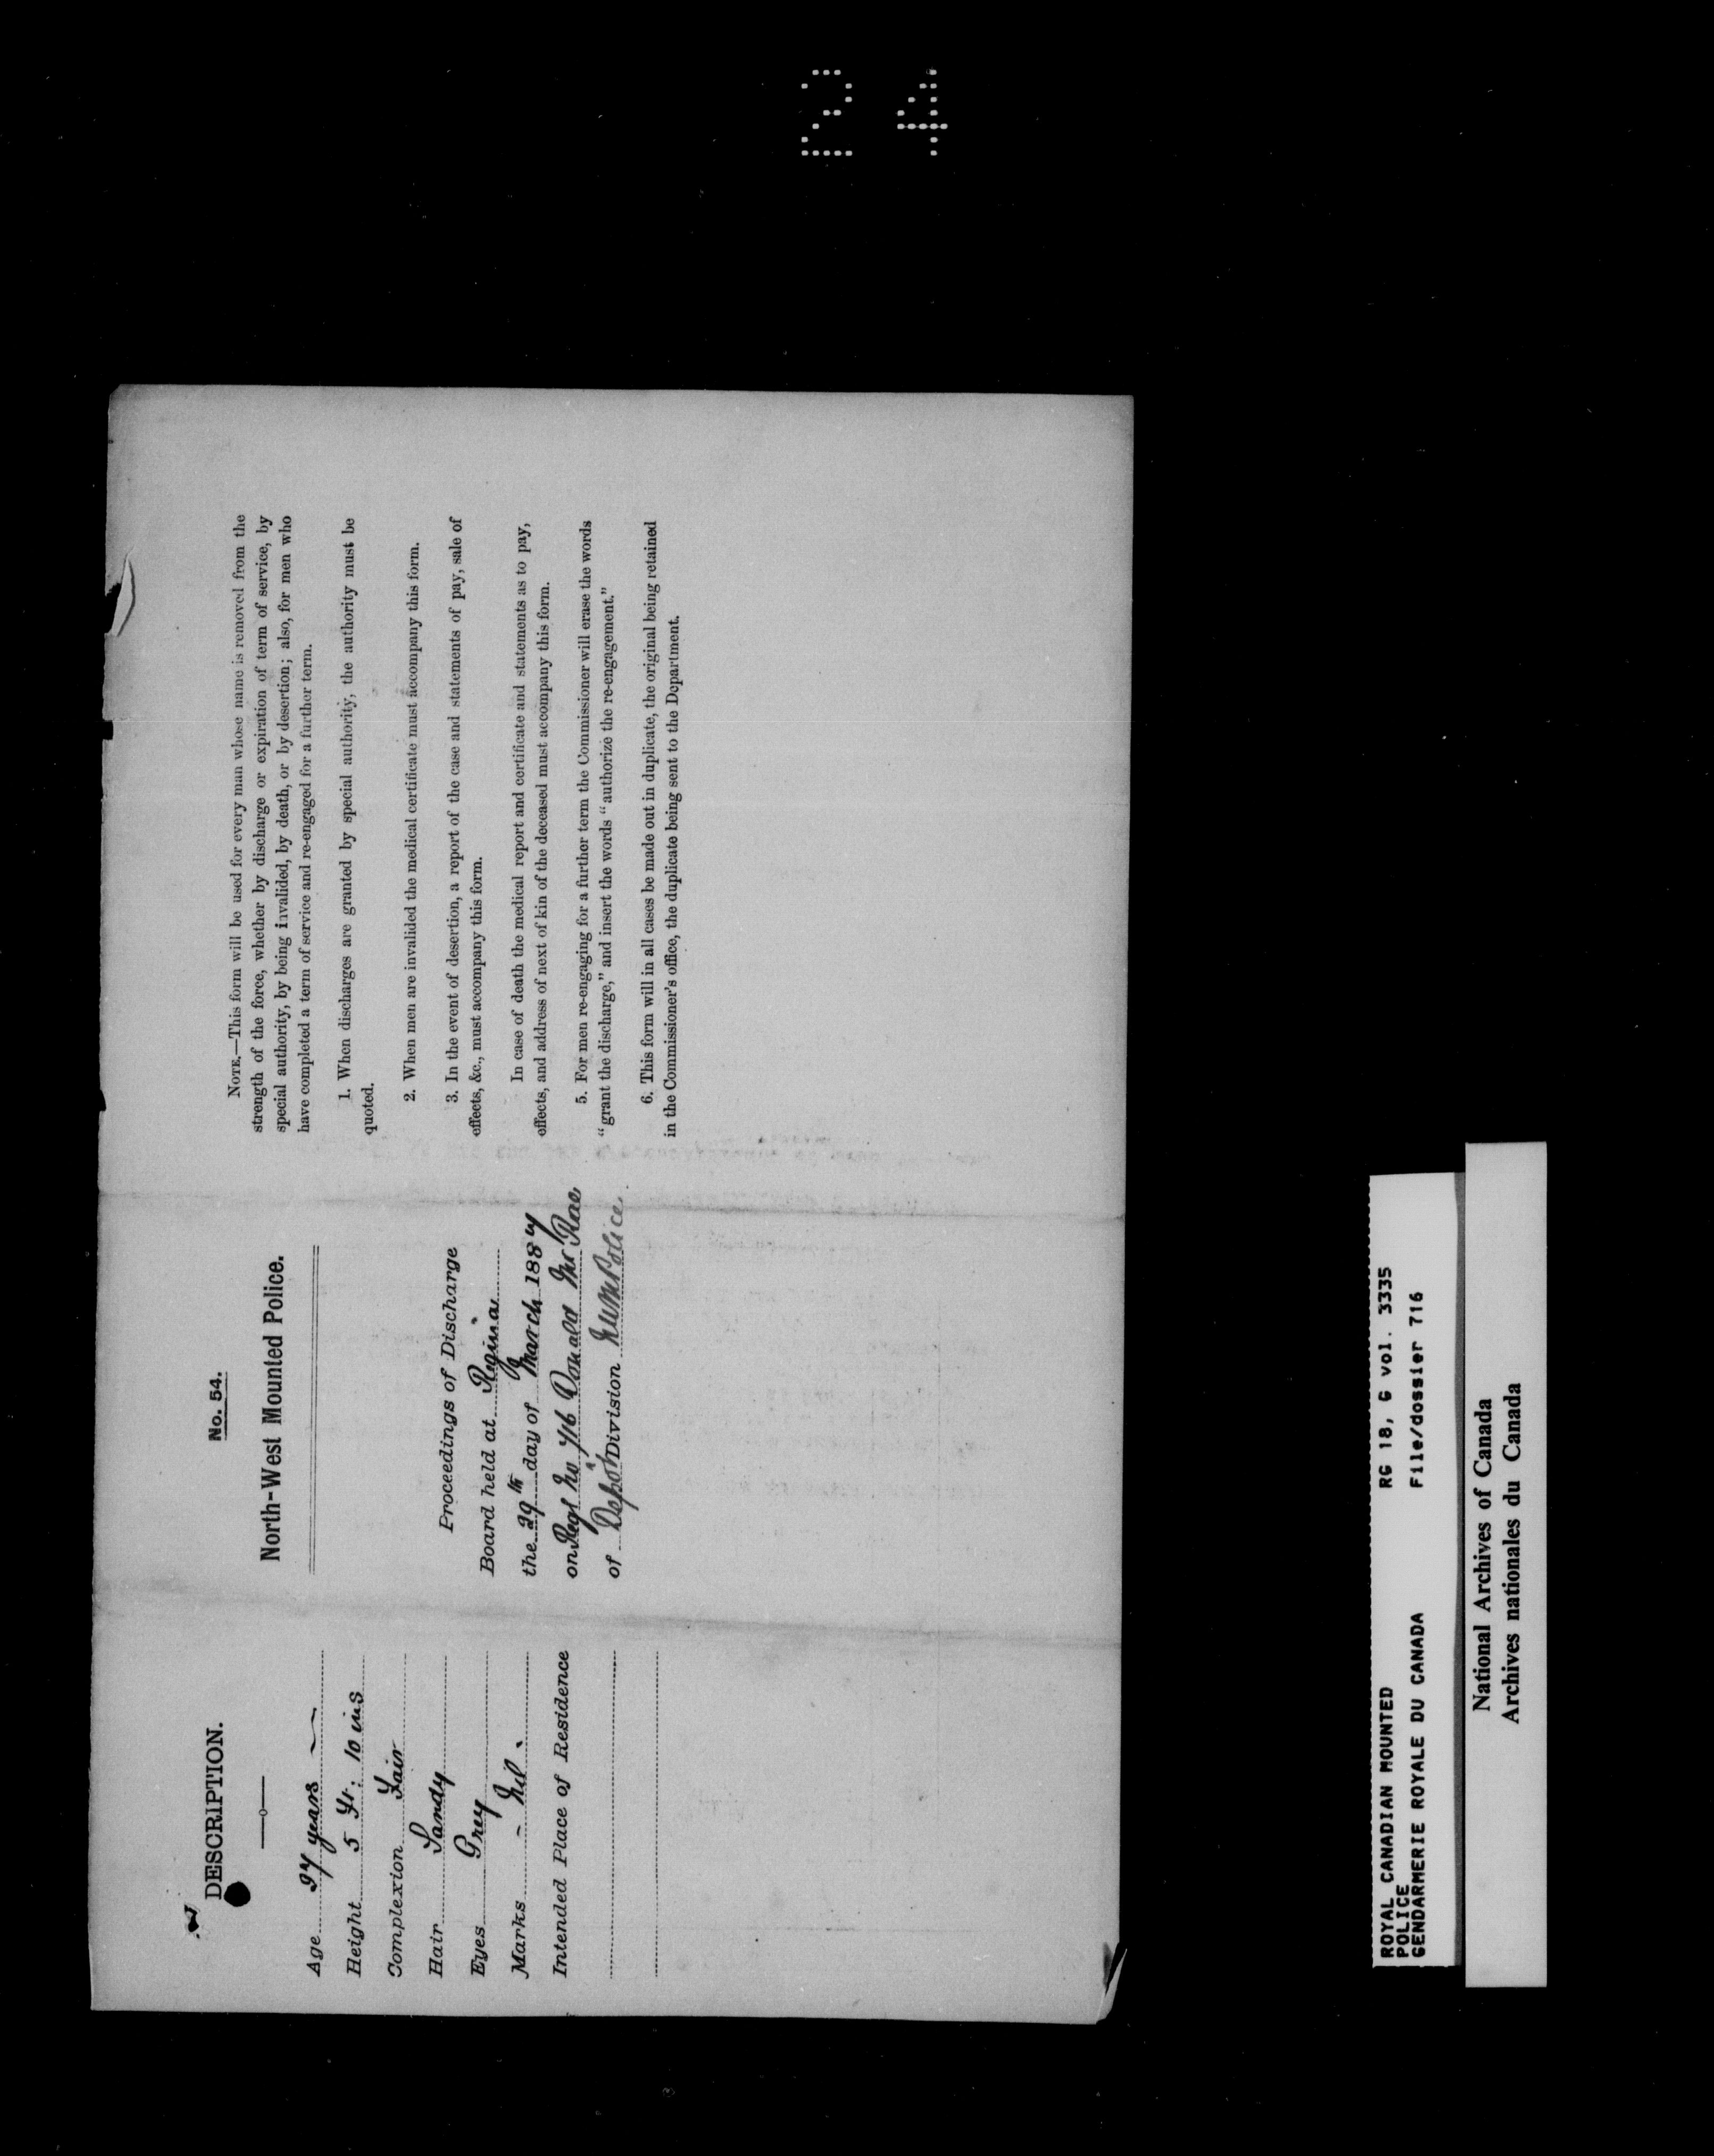 24
DESCRIPTION.
Age 27 years
Height 5 ft: 10 ins
Complexion Fair
Hair Sandy
Eyes Grey
Marks - Nil.
Intended Place of Residence
No. 54.
North-West Mounted Police.
Proceedings of Discharge
Board held at Regina
the 29th day of March 1887
on Regl No 716 Donald McRae
of Depot Division N.W.M. Police.
NOTE.—This form will be used for every man whose name is removed from the
strength of the force, whether by discharge or expiration of term of service, by
special authority, by being invalided, by death, or by desertion; also, for men who
have completed a term of service and re-engaged for a further term.
1. When discharges are granted by special authority, the authority must be
quoted.
2. When men are invalided the medical certificate must accompany this form.
3. In the event of desertion, a report of the case and statements of pay, sale of
effects, &c., must accompany this form.
In case of death the medical report and certificate and statements as to pay,
effects, and address of next of kin of the deceased must accompany this form.
5. For men re-engaging for a further term the Commissioner will erase the words
“grant the discharge,” and insert the words “authorize the re-engagement.”
6. This form will in all cases be made out in duplicate, the original being retained
in the Commissioner's office, the duplicate being sent to the Department.
ROYAL CANADIAN MOUNTED RG 18, G vol. 3335
POLICE
GENDARMERIE ROYALE DU CANADA File/dossier 716
National Archives of Canada
Archives nationales du Canada